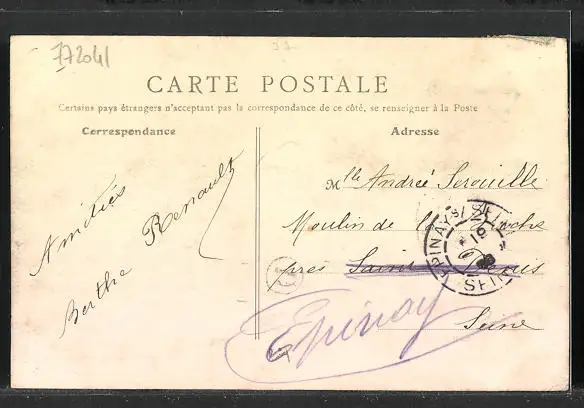 772041
CARTE POSTALE
Certains pays étrangers n'acceptant pas la correspondance de ce côté, se renseigner à la Poste
Correspondance
Adresse
Amitiés
Berthe Renault
Mlle Andrée Serouille
Moulin de la
près Saint Denis
Epinay
Seine
EPINAY S/ SEINE
SEINE